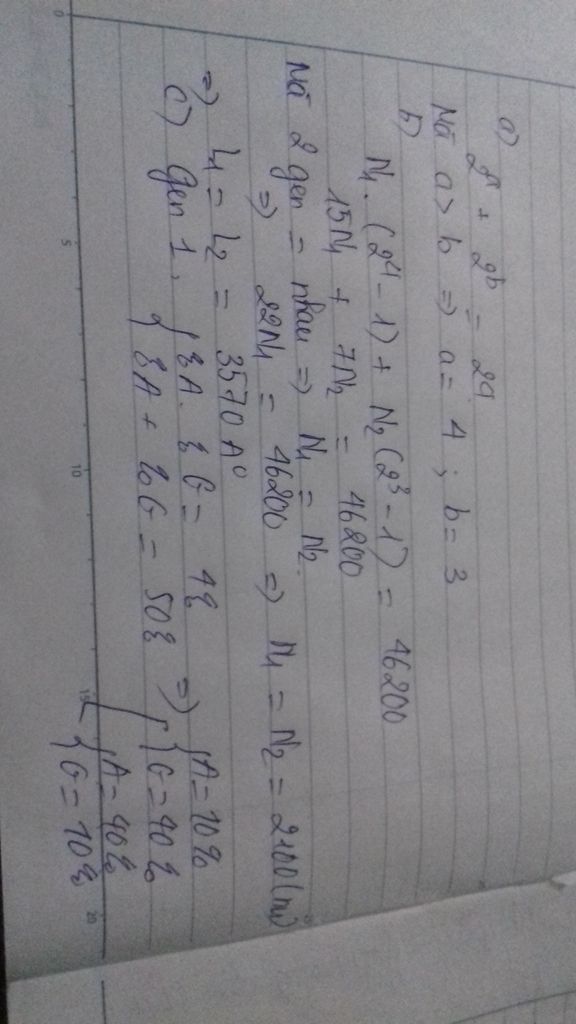 a) 2ᵃ + 2ᵇ = 24
Mà a > b => a = 4 ; b = 3
b)
N₁. (2⁴ - 1) + N₂ (2³ - 1) = 46200
15N₁ + 7N₂ = 46200
Mà 2 gen = nhau => N₁ = N₂
=> 22N₁ = 46200 => N₁ = N₂ = 2100 (nu)
=> L₁ = L₂ = 3570 A°
c) Gen 1, { %A . %G = 4%
%A + %G = 50% => [ { A = 10%
G = 40%
{ A = 40%
G = 10%
0 5 10 15 20